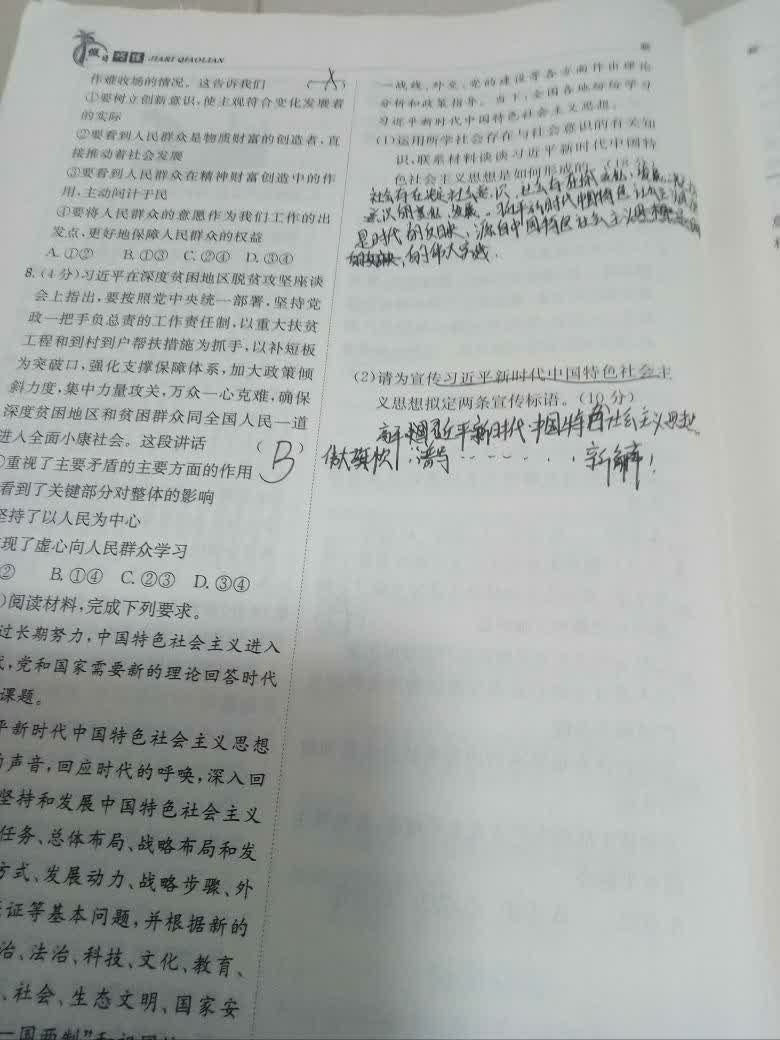 假日巧练 JIARI QIAOLIAN
作难收场的情况。这告诉我们 ( A )
①要树立创新意识,使主观符合变化发展着
的实际
②要看到人民群众是物质财富的创造者,直
接推动着社会发展
③要看到人民群众在精神财富创造中的作
用,主动问计于民
④要将人民群众的意愿作为我们工作的出
发点,更好地保障人民群众的权益
A. ①② B. ①③ C. ②④ D. ③④
8. (4分)习近平在深度贫困地区脱贫攻坚座谈
会上指出,要按照党中央统一部署,坚持党
政一把手负总责的工作责任制,以重大扶贫
工程和到村到户帮扶措施为抓手,以补短板
为突破口,强化支撑保障体系,加大政策倾
斜力度,集中力量攻关,万众一心克难,确保
深度贫困地区和贫困群众同全国人民一道
进入全面小康社会。这段讲话 ( B )
①重视了主要矛盾的主要方面的作用
看到了关键部分对整体的影响
坚持了以人民为中心
现了虚心向人民群众学习
② B. ①④ C. ②③ D. ③④
)阅读材料,完成下列要求。
过长期努力,中国特色社会主义进入
,党和国家需要新的理论回答时代
课题。
平新时代中国特色社会主义思想
声音,回应时代的呼唤,深入回
坚持和发展中国特色社会主义
任务、总体布局、战略布局和发
方式、发展动力、战略步骤、外
证等基本问题,并根据新的
治、法治、科技、文化、教育、
、社会、生态文明、国家安
一国两制”和祖国
一战线、外交、党的建设等各方面作出理论
分析和政策指导。当下,全国各地纷纷学习
习近平新时代中国特色社会主义思想。
(1)运用所学社会存在与社会意识的有关知
识,联系材料谈谈习近平新时代中国特
色社会主义思想是如何形成的。
社会存在决定社会意识,社会存在的变化、发展
意识的变化、发展。习近平新时代中国特色社会主义
是时代的反映,源自中国特色社会主义
的伟大实践。
(2)请为宣传习近平新时代中国特色社会主
义思想拟定两条宣传标语。(10分)
高举习近平新时代中国特色社会主义思想
伟大旗帜